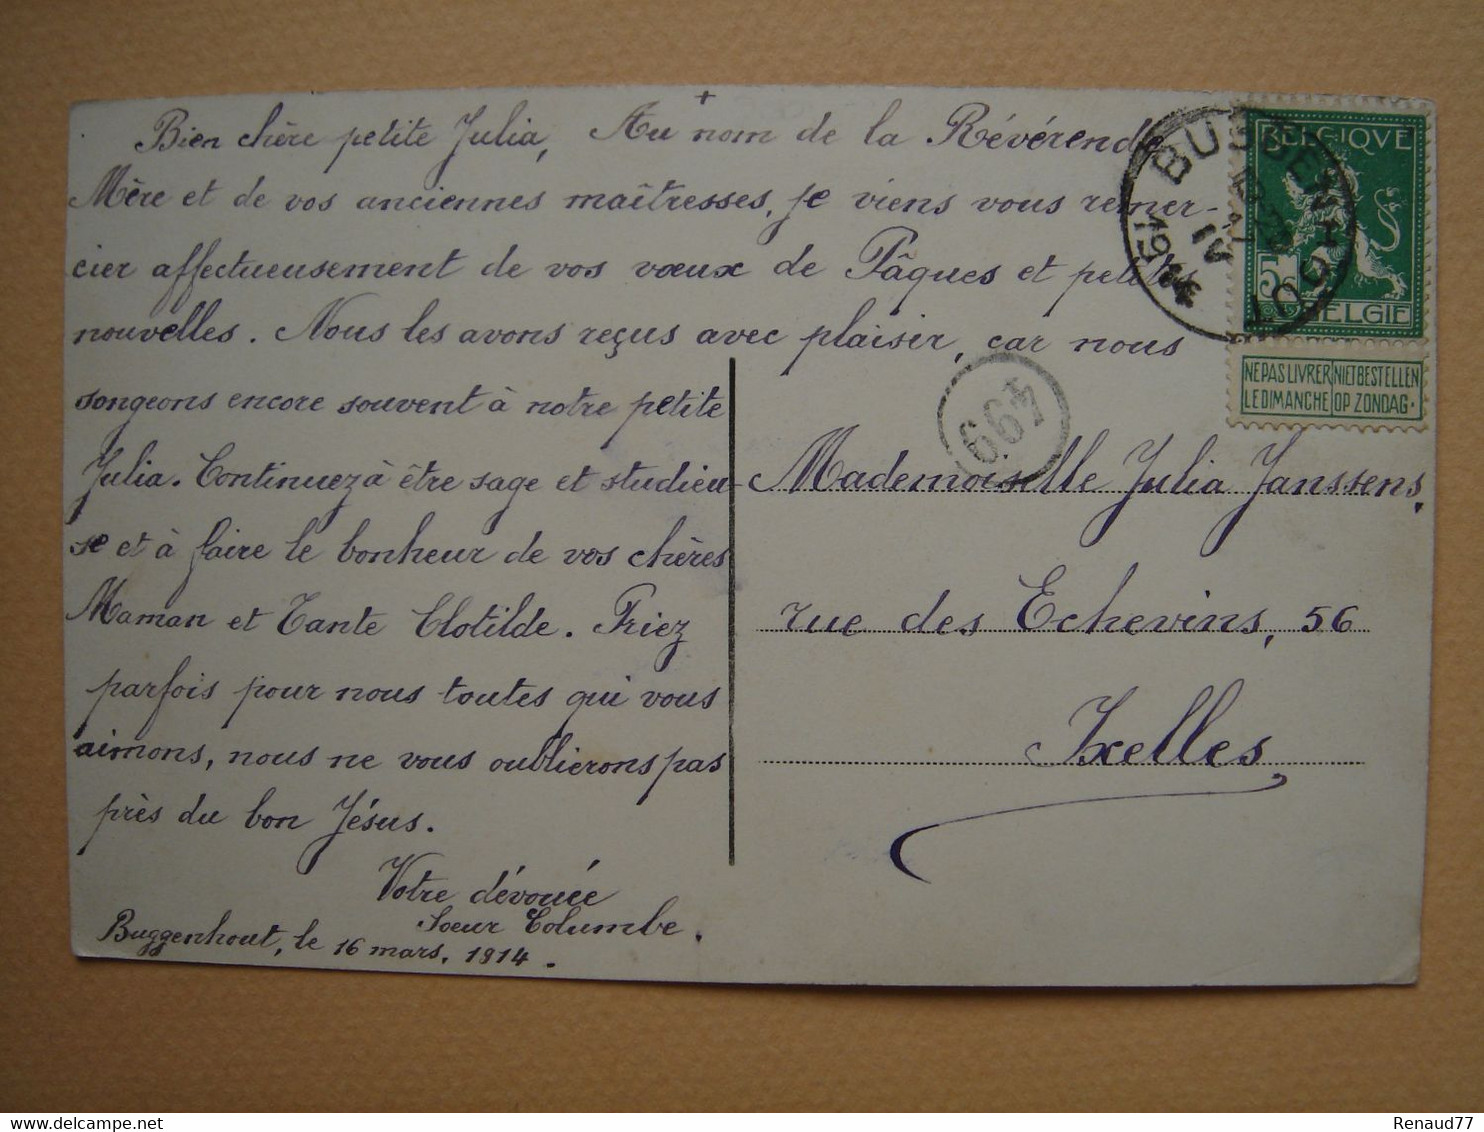 +
Bien chère petite Julia, Au nom de la Révérende
Mère et de vos anciennes maîtresses, je viens vous remer-
cier affectueusement de vos vœux de Pâques et petites
nouvelles. Nous les avons reçus avec plaisir, car nous
songeons encore souvent à notre petite
Julia. Continuez à être sage et studieu-
se et à faire le bonheur de vos chères
Maman et Tante Clotilde. Priez
parfois pour nous toutes qui vous
aimons, nous ne vous oublierons pas
près du bon Jésus.
Votre dévouée
Soeur Columbe.
Buggenhout, le 16 mars, 1914.
BELGIQVE
5
BELGIE
NE PAS LIVRER NIET BESTELLEN
LE DIMANCHE OP ZONDAG.
499
Mademoiselle Julia Janssens,
rue des Echevins, 56
Ixelles
delcampe.net
Renaud77